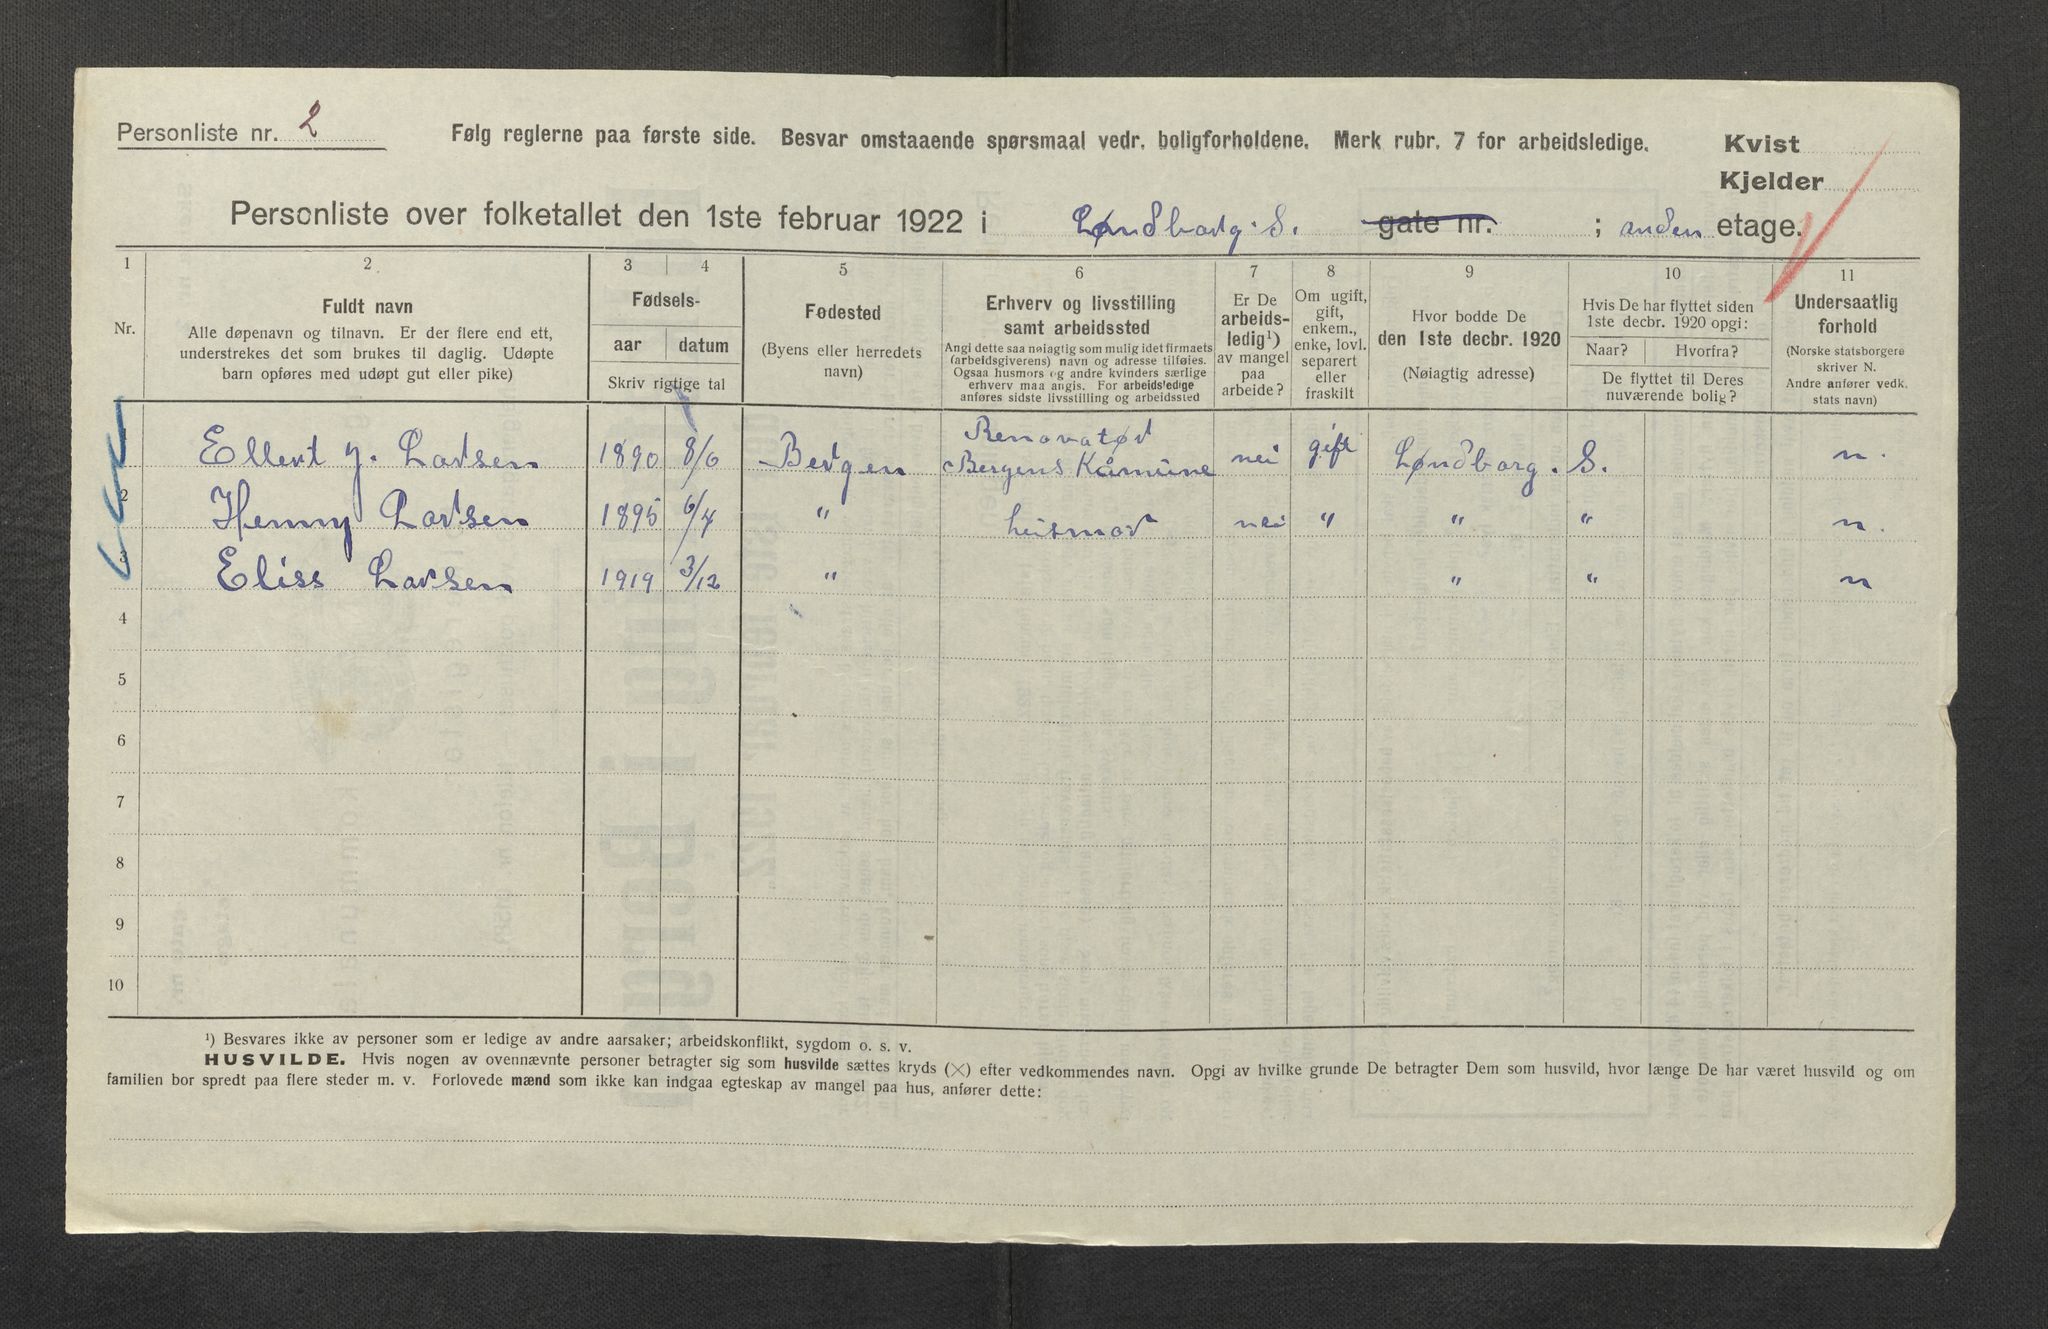 Personliste nr. 2
Følg reglerne paa første side. Besvar omstaaende spørsmaal vedr. boligforholdene. Merk rubr. 7 for arbeidsledige.
Kvist
Kjelder
Personliste over folketallet den 1ste februar 1922 i Løndborg. S. gate nr. ; anden etage.
1 2 3 4 5 6 7 8 9 10 11
Nr.
Fuldt navn
Alle døpenavn og tilnavn. Er der flere end ett,
understrekes det som brukes til daglig. Udøpte
barn opføres med udøpt gut eller pike)
Fødsels-
aar datum
Skriv rigtige tal
Fødested
(Byens eller herredets
navn)
Erhverv og livsstilling
samt arbeidssted
Angi dette saa nøiagtig som mulig idet firmaets
(arbeidsgiverens) navn og adresse tilføies.
Ogsaa husmors og andre kvinders særlige
erhverv maa angis. For arbeidsledige
anføres sidste livsstilling og arbeidssted
Er De
arbeids-
ledig¹)
av mangel
paa
arbeide?
Om ugift,
gift,
enkem.,
enke, lovl.
separert
eller
fraskilt
Hvor bodde De
den 1ste decbr. 1920
(Nøiagtig adresse)
Hvis De har flyttet siden
1ste decbr. 1920 opgi:
Naar? Hvorfra?
De flyttet til Deres
nuværende bolig?
Undersaatlig
forhold
(Norske statsborgere
skriver N.
Andre anfører vedk.
stats navn)
Renovatør
Ellert J. Larsen 1890 8/6 Bergen Bergens Kåmune nei gift Løndborg. S. n.
2 Henny Larsen 1895 6/4 " husmor nei " " " n.
3 Eliss Larsen 1919 3/12 " " " n
4
5
6
7
8
9
10
¹) Besvares ikke av personer som er ledige av andre aarsaker; arbeidskonflikt, sygdom o. s. v.
HUSVILDE. Hvis nogen av ovennævnte personer betragter sig som husvilde sættes kryds (×) efter vedkommendes navn. Opgi av hvilke grunde De betragter Dem som husvild, hvor længe De har været husvild og om
familien bor spredt paa flere steder m. v. Forlovede mænd som ikke kan indgaa egteskap av mangel paa hus, anfører dette: